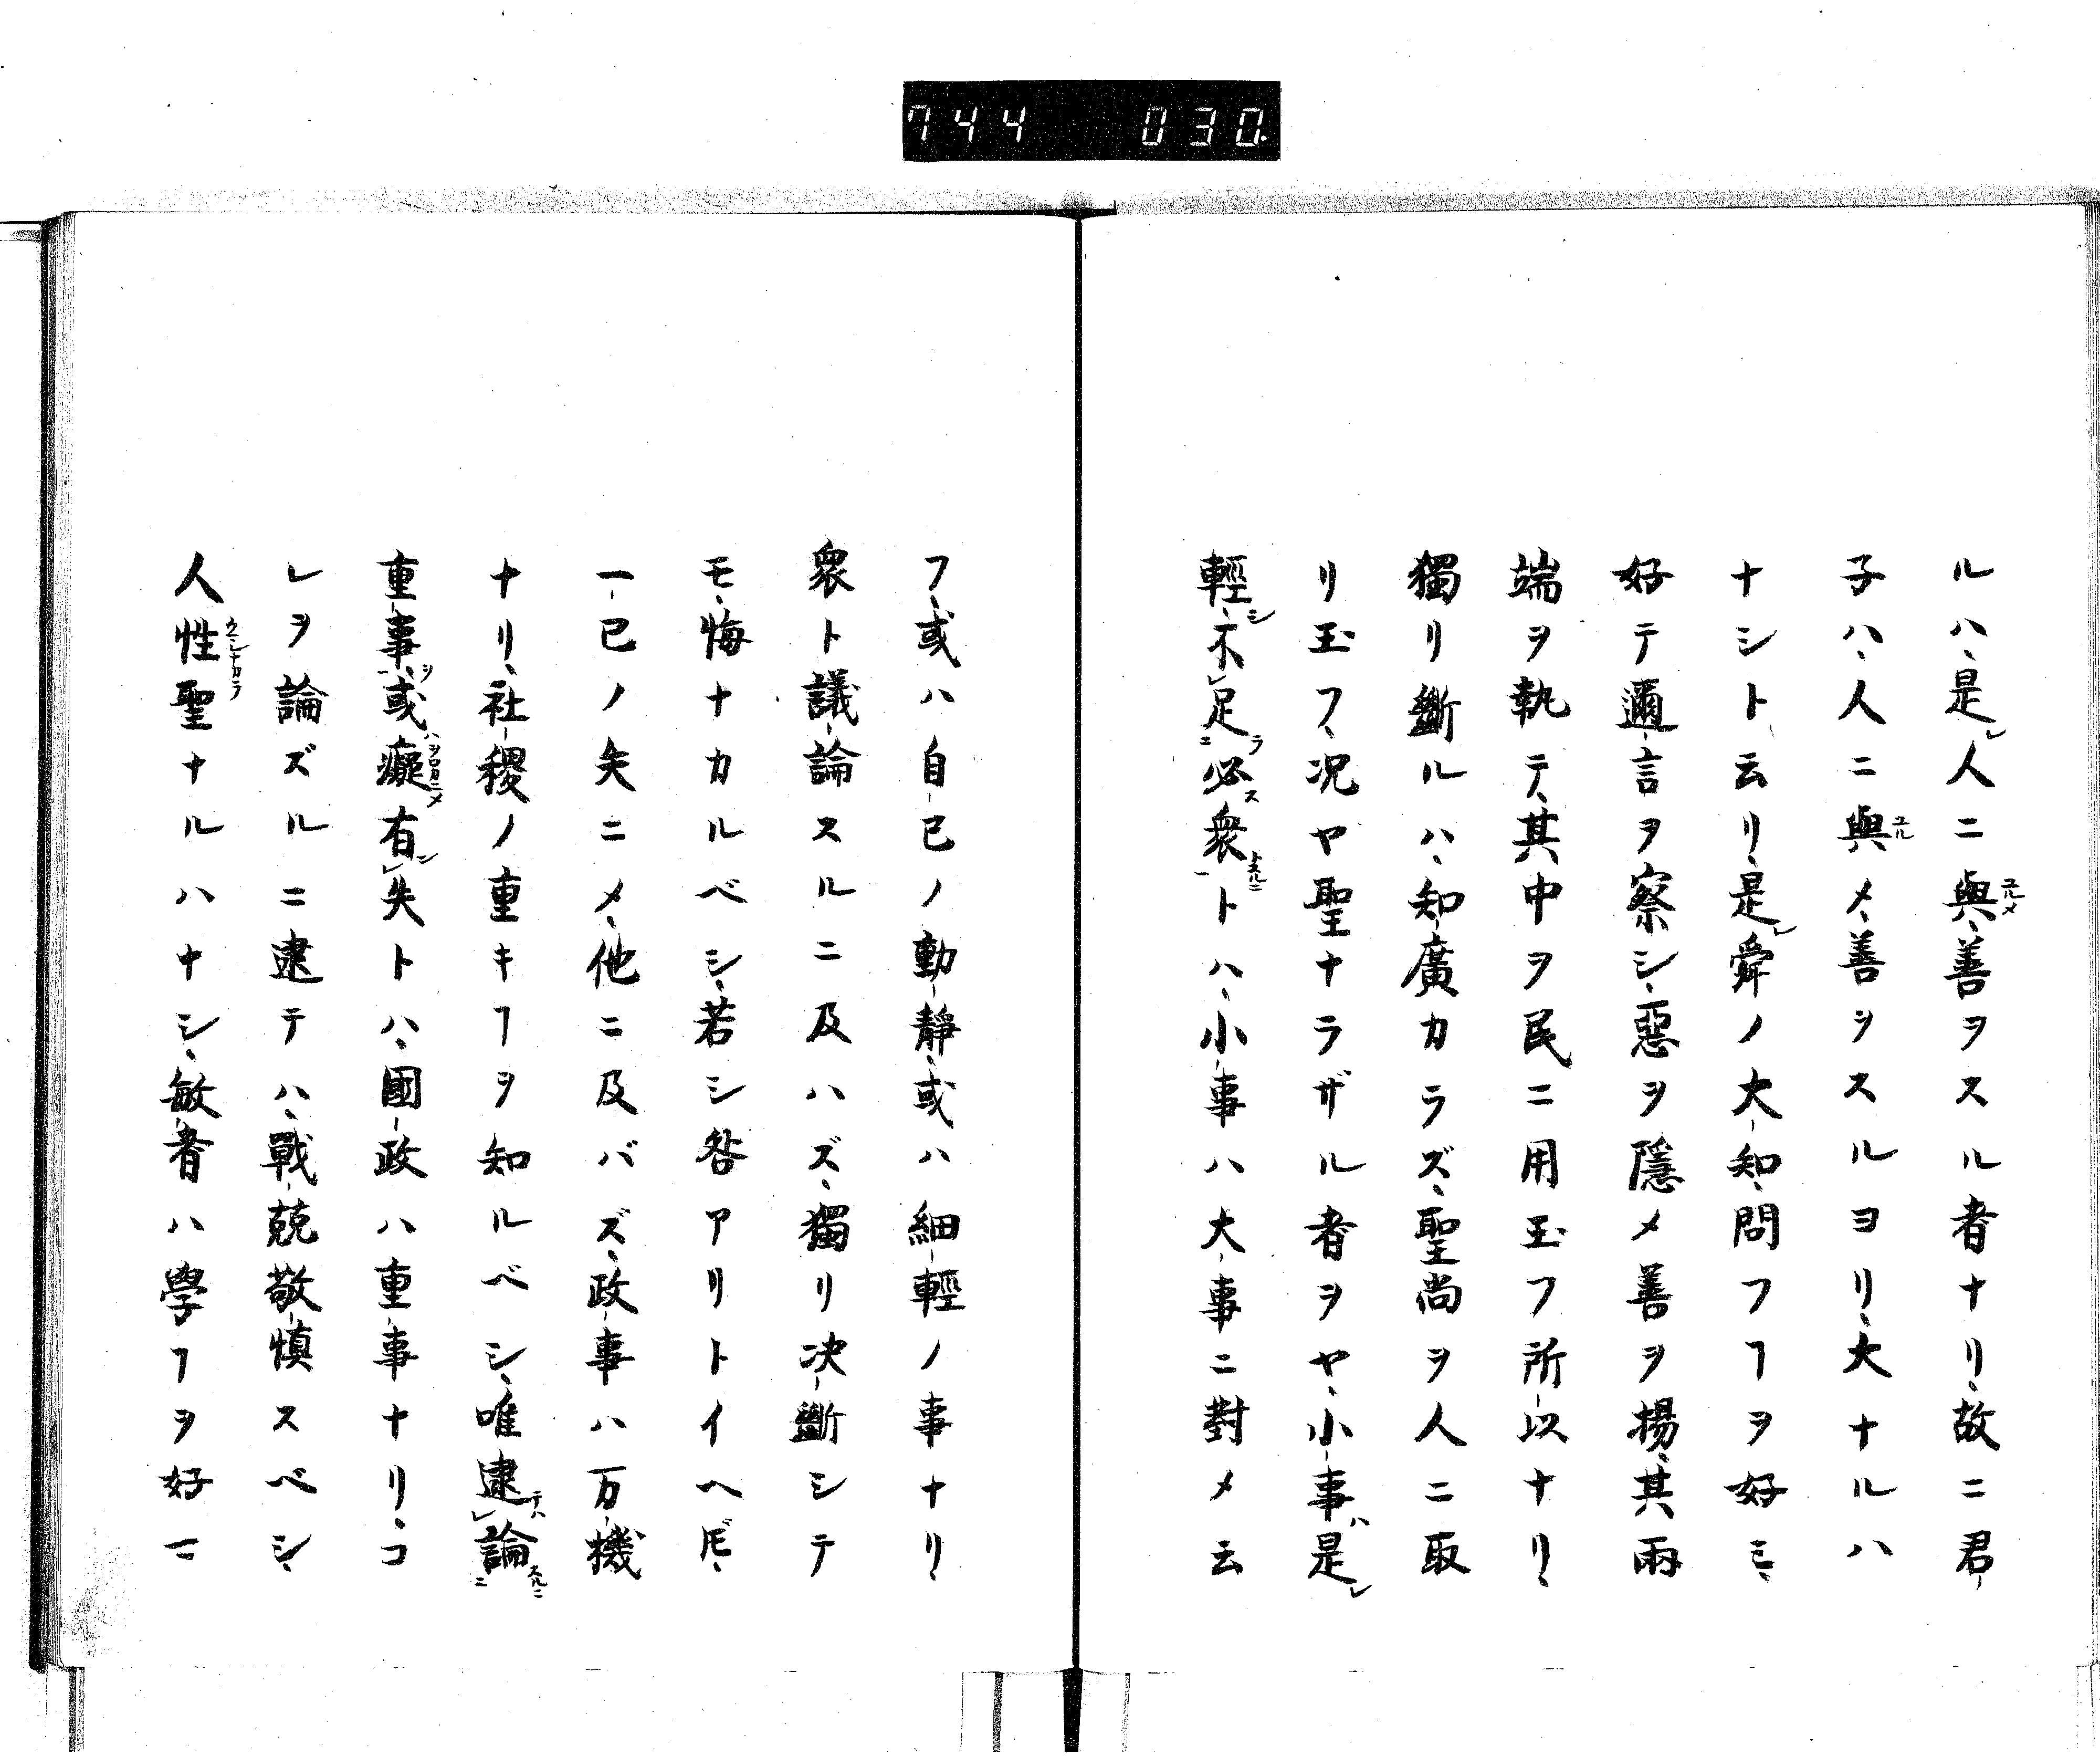 744 030
ルハ、是レ人ニ與ユルメ、善ヲスル者ナリ、故ニ君
子ハ、人ニ與ユルメ、善ヲスルヨリ、大ナルハ
ナシト云リ、是レ舜ノ大知、問フヿヲ好ミ、
好テ邇言ヲ察シ、惡ヲ隱メ善ヲ揚、其兩
端ヲ執テ、其中ヲ民ニ用玉フ所以ナリ、
獨リ斷ルハ、知廣カラズ、聖尚ヲ人ニ取
リ玉フ、况ヤ聖ナラザル者ヲヤ、小事ハ是レ
輕シ、不レ足ラ二必ス衆一トスルニトハ、小事ハ大事ニ對メ云
フ、或ハ自己ノ動靜、或ハ細輕ノ事ナリ、
衆ト議論スルニ及ハズ、獨リ决斷シテ
モ、悔ナカルベシ、若シ咎アリトイヘ𪜈、
一己ノ失ニメ、他ニ及バズ、政事ハ万機
ナリ、社稷ノ重キヿヲ知ルベシ、唯逮テハレ論スルニ二
重事ヲ一、或ハ癡ヲロカニメ有シレ失トハ、國政ハ重事ナリ、コ
レヲ論ズルニ逮テハ、戰兢敬慎スベシ、
人性ウミレナカラ聖ナルハナシ、敏者ハ學フヿヲ好ニ